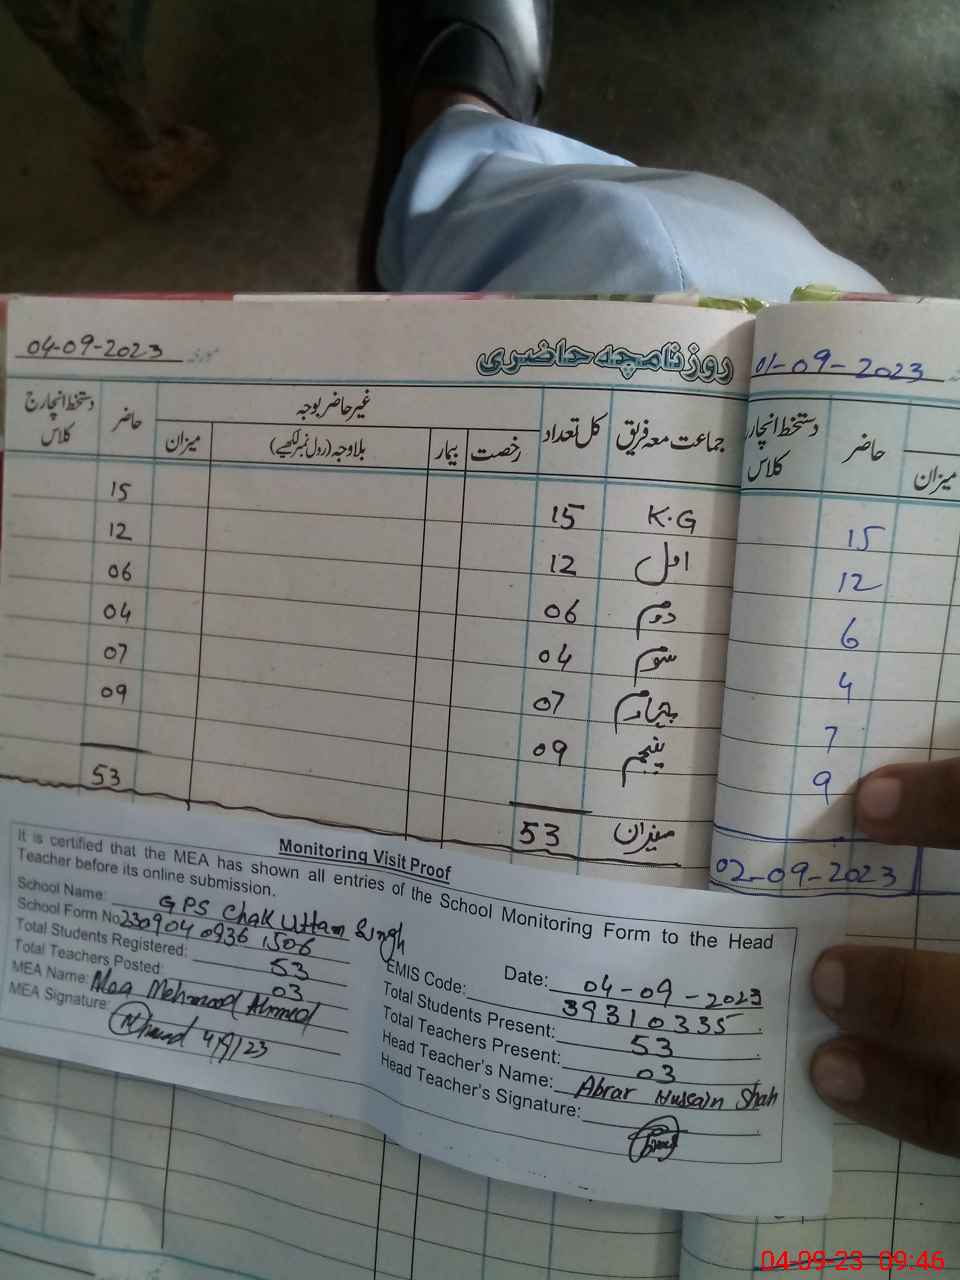 روزنامچہ حاضری
مورخہ 04-09-2023
جماعت معہ فریق کل تعداد غیر حاضر بوجہ حاضر دستخط انچارج کلاس
رخصت بیمار بلاوجہ (رول نمبر لکھیے) میزان
K.G 15 15
اول 12 12
دوم 06 06
سوم 04 04
چہارم 07 07
پنجم 09 09
میزان 53 53
01-09-2023
میزان حاضر دستخط انچارج کلاس
15
12
6
4
7
9
02-09-2023
Monitoring Visit Proof
It is certified that the MEA has shown all entries of the School Monitoring Form to the Head
Teacher before its online submission.
School Name: GPS Chak Uttam Singh
School Form No 2309040936 1506
Total Students Registered: 53
Total Teachers Posted: 03
MEA Name: Mehmood Ahmed
MEA Signature: 4/9/23
Date: 04-09-2023
EMIS Code: 39310335
Total Students Present: 53
Total Teachers Present: 03
Head Teacher's Name: Abrar Hussain Shah
Head Teacher's Signature:
04-09-23 09:46